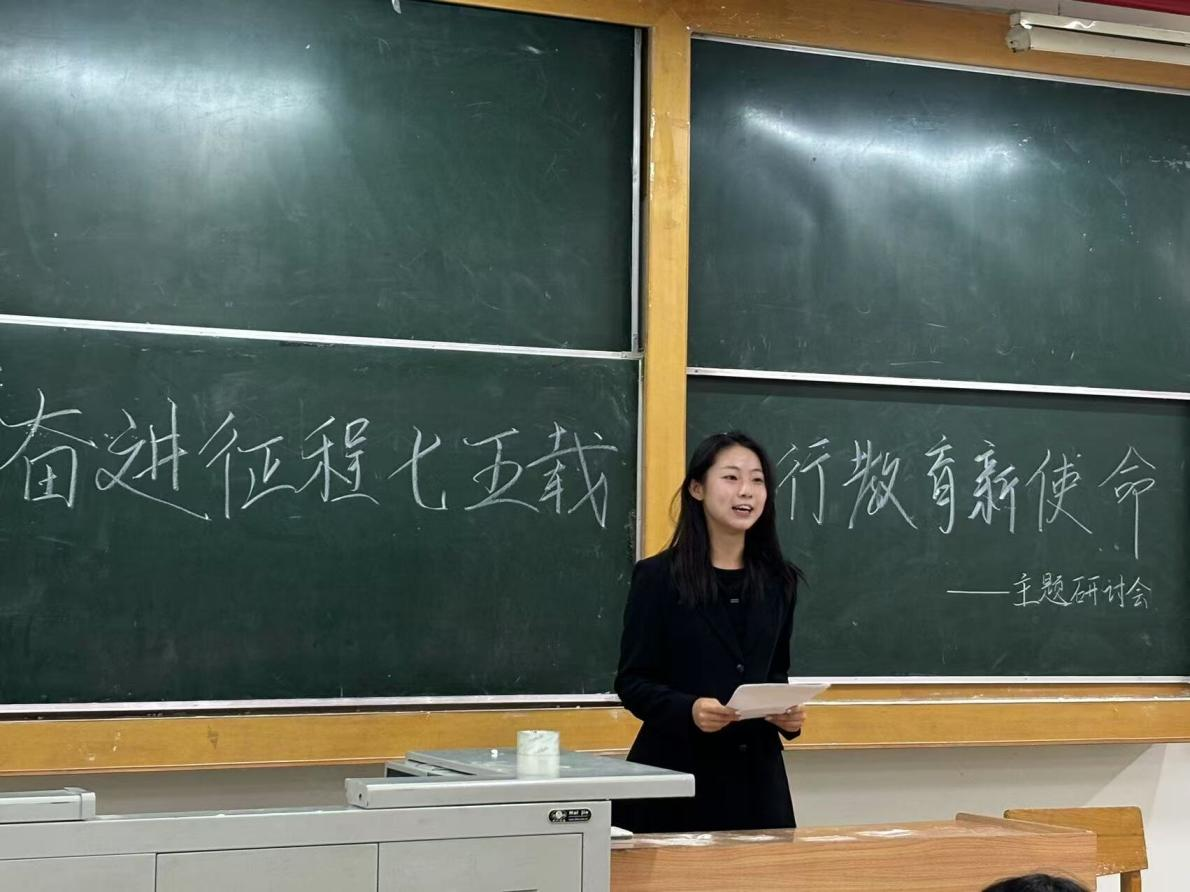 奋进征程七五载 行教育新使命
——主题研讨会
Hai Jie